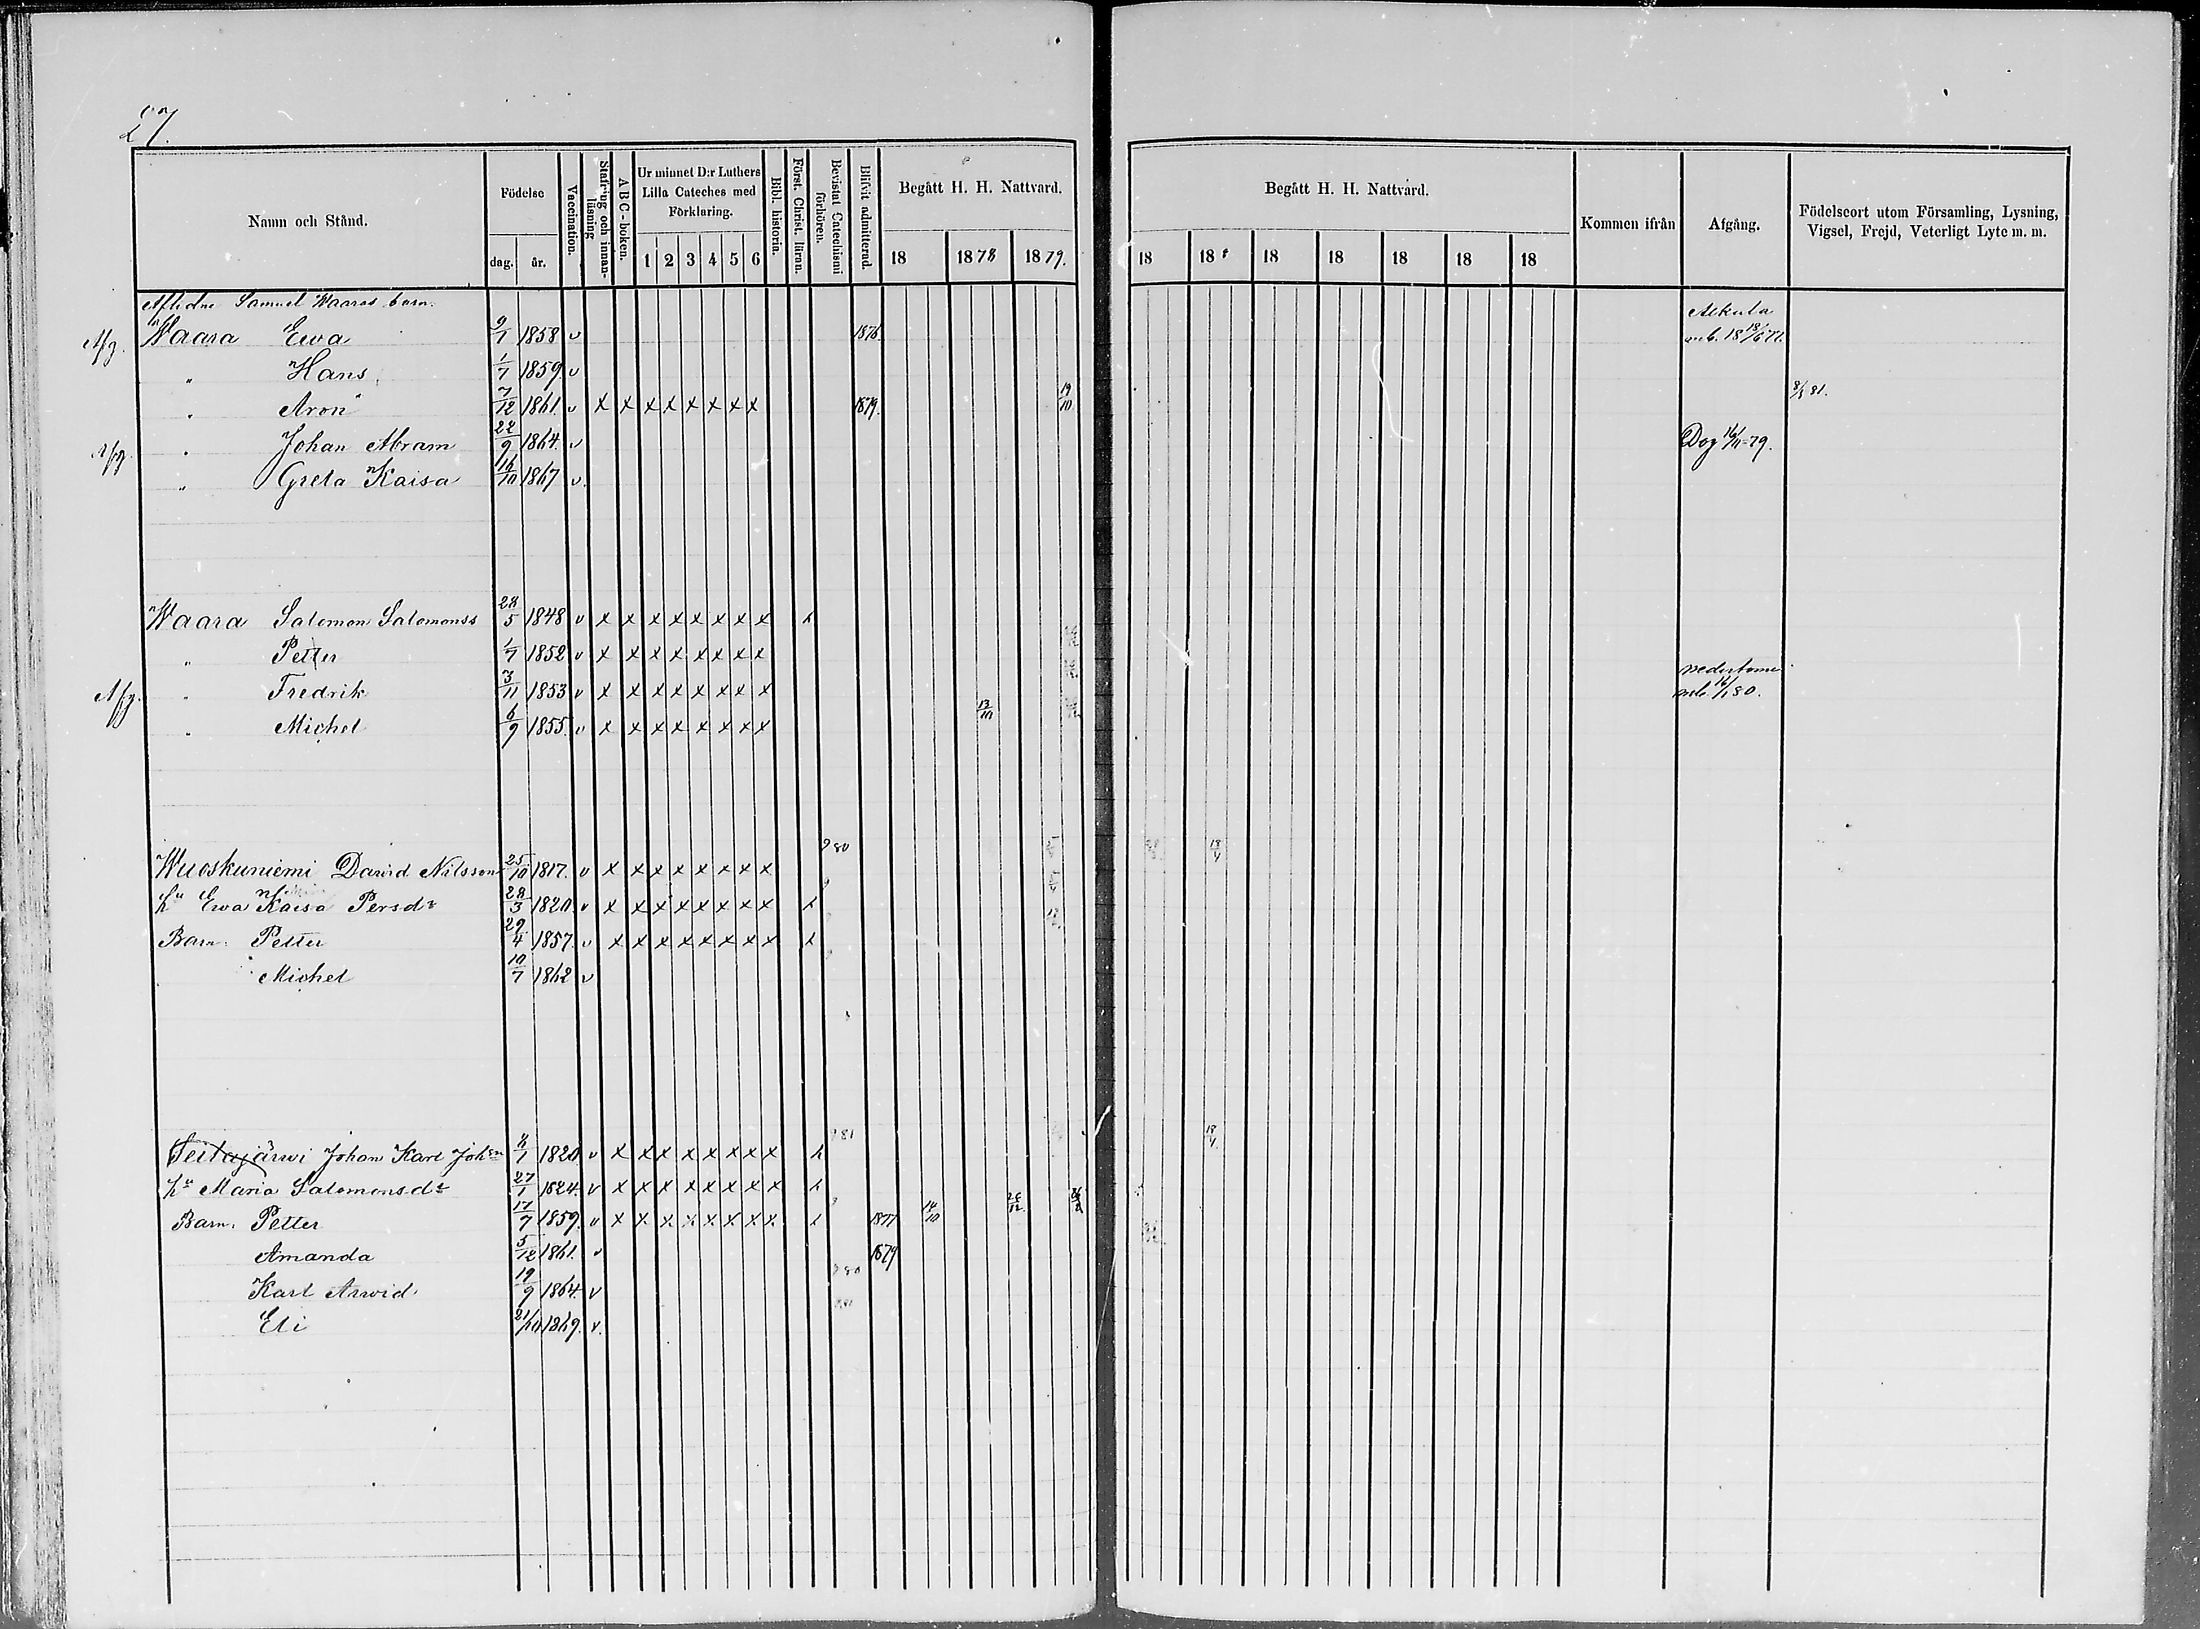 27.
Namn och Stånd. Födelse Vaccination. Stafning och innanläsning ABC-boken. Ur minnet D:r Luthers Lilla Cateches med Förklaring. Bibl. historia. Först. Christ. läran. Bevistat Catechismi förhören. Blifvit admitterad. Begått H. H. Nattvard. Begått H. H. Nattvard. Kommen ifrån Afgång. Födelseort utom Församling, Lysning, Vigsel, Frejd, Veterligt Lyte m. m.
dag. år. 1 2 3 4 5 6 18 1878 1879. 18 18 18 18 18 18 18
Aflidne Samuel Waaras barn.
Afg. Waara Ewa 9/1 1858 v 1876
" Hans 1/7 1859. v
" Aron 7/12 1861. v x x x x x x x x 1879. 19/10 8/5 81.
Afg. " Johan Abram 22/9 1864. v Dog 16/11-79.
" Greta Kaisa 16/10 1867 v.
Waara Salomon Salomonss 28/5 1848 v x x x x x x x x x
" Petter 1/7 1852 v x x x x x x x x
Afg. " Fredrik 3/11 1853 v x x x x x x x x 16/1 80.
" Michel 6/9 1855. v x x x x x x x x 13/10
Wuoskuniemi David Nilsson 25/10 1817. v x x x x x x x x 80 18/4
hu Ewa Kaisa Persdr 28/3 1820. v x x x x x x x x x
Barn: Petter 29/4 1857. v x x x x x x x x x
Michel 10/7 1862 v
Seitajärwi Johan Karl Johsn 8/1 1820. v x x x x x x x x x 81 18/4
hu Maria Salomonsdr 27/1 1824. v x x x x x x x x x
Barn: Petter 17/7 1859. v x x x x x x x x x 1877 14/10
Amanda 5/12 1861. v 1879
Karl Arwid 19/9 1864. v 80
Eli 21/10 1869. v. 81